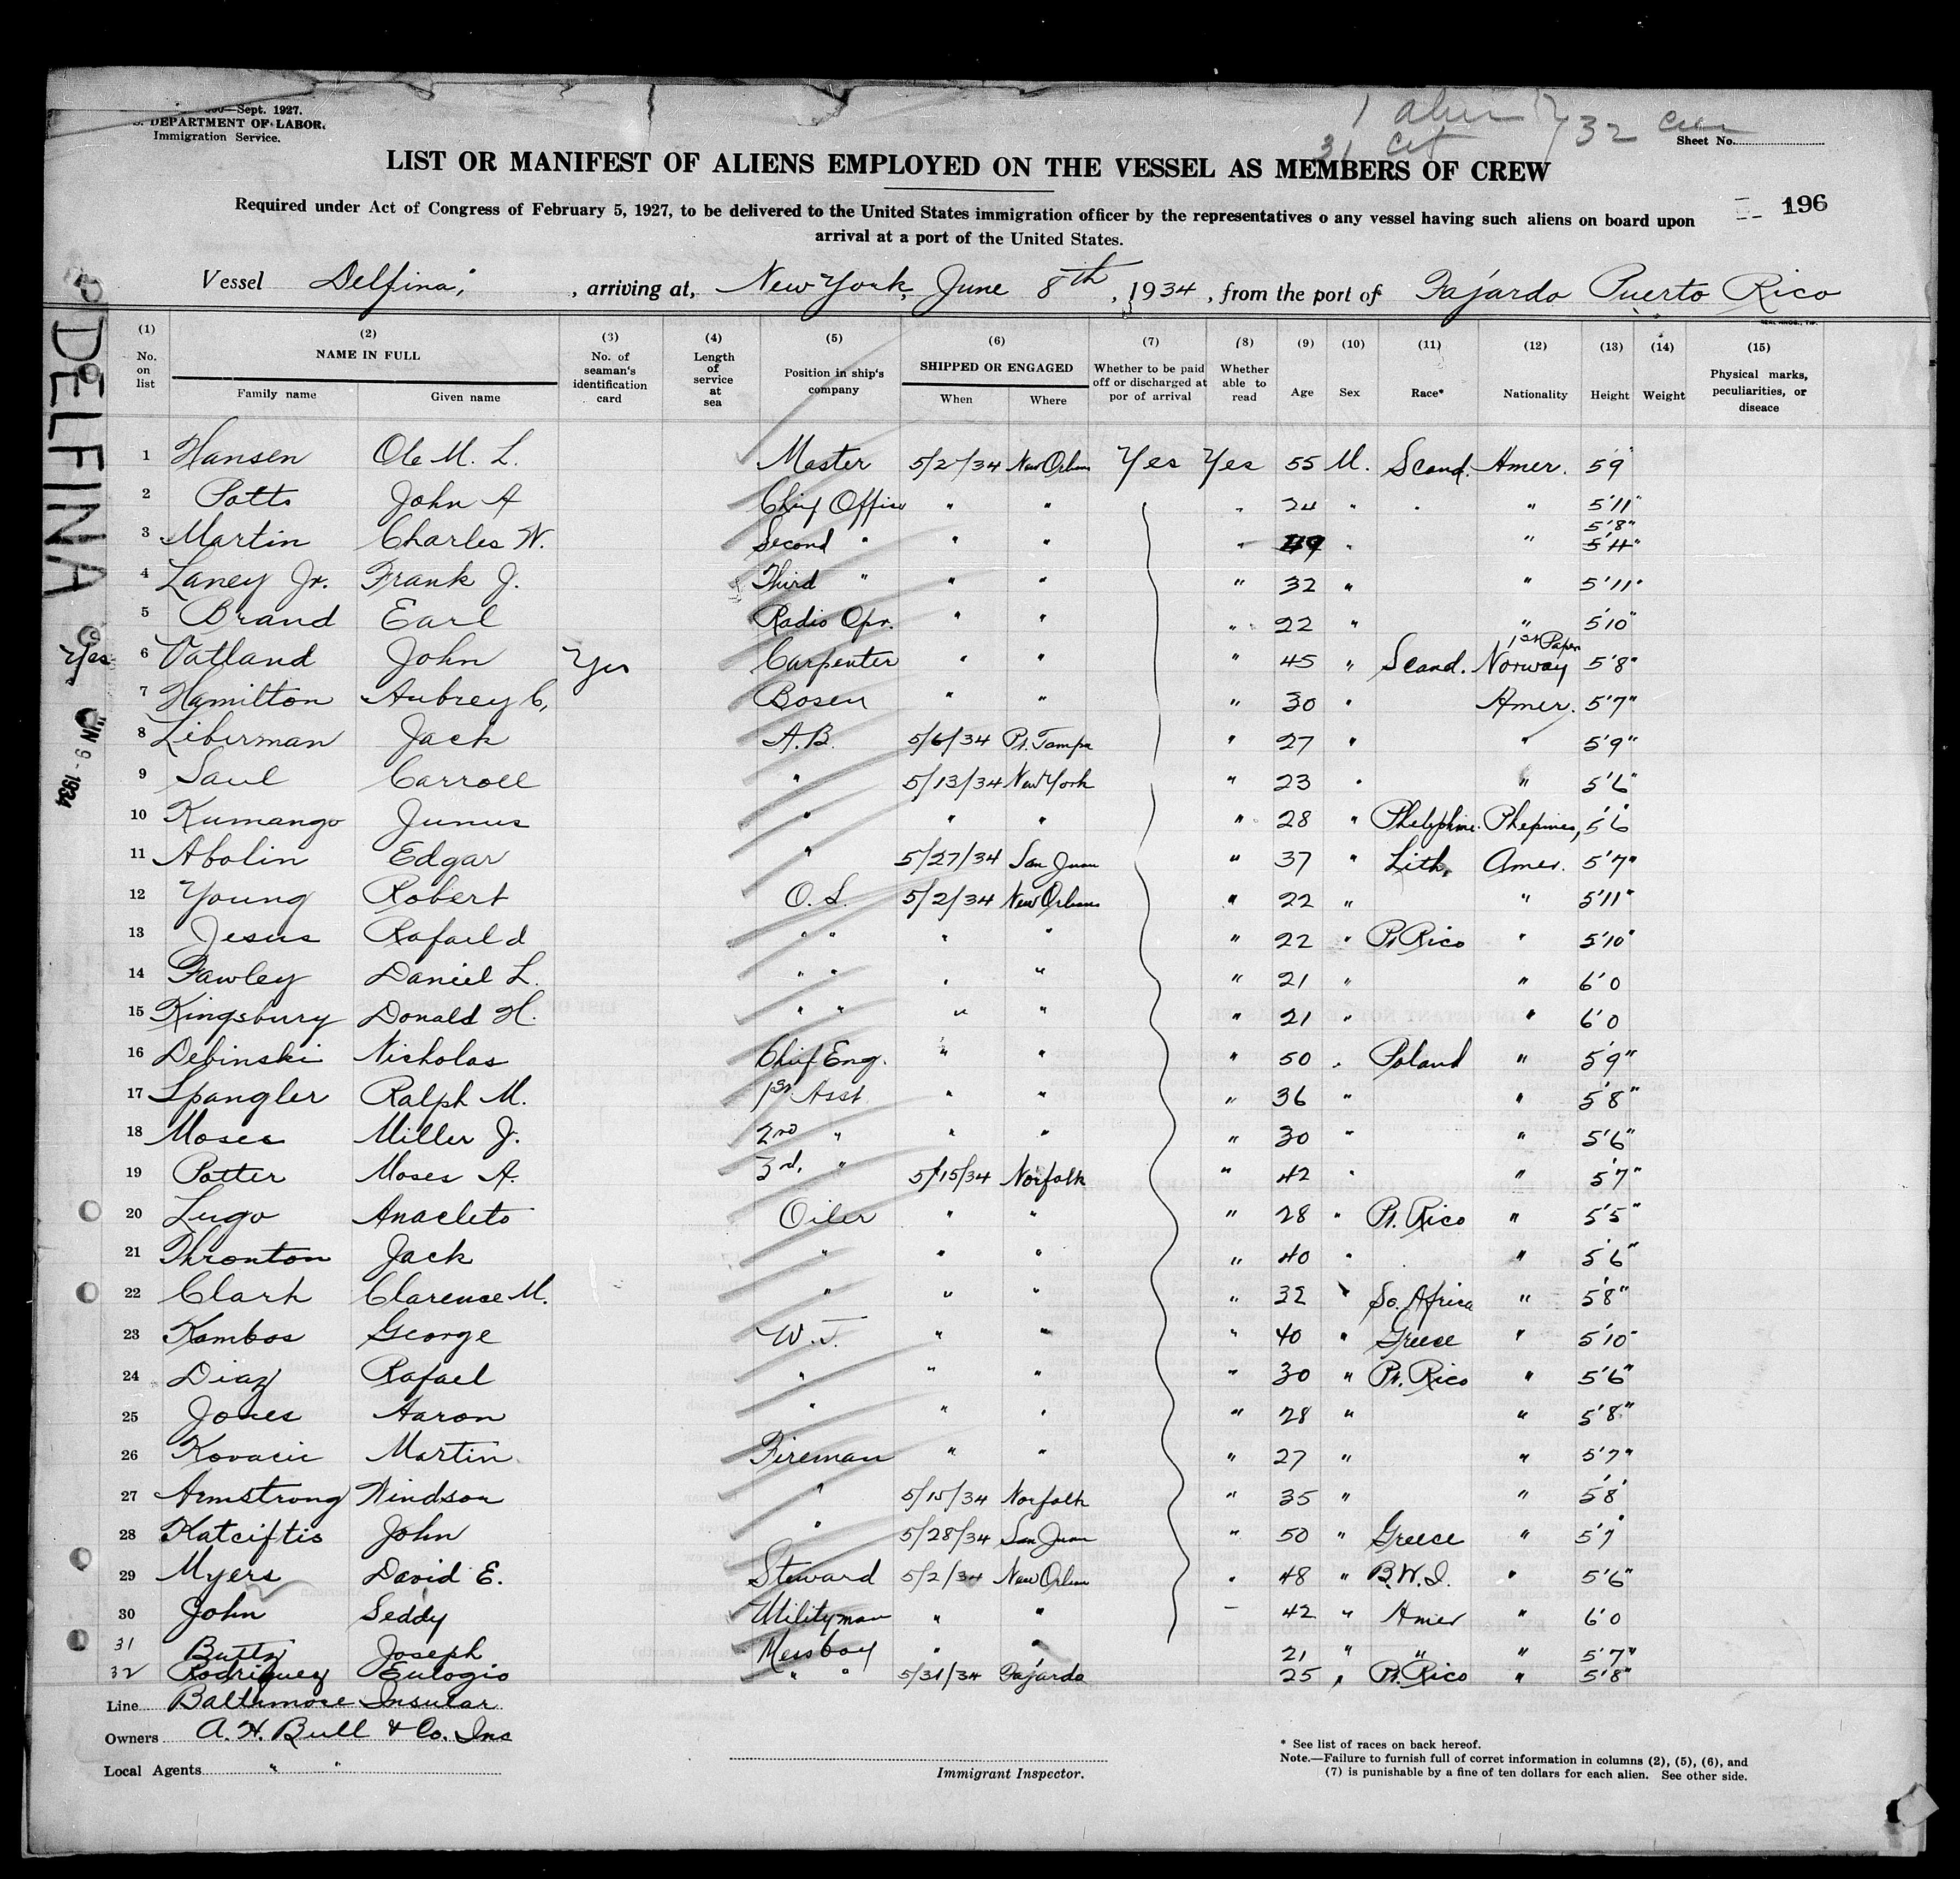 —Sept. 1927.
DEPARTMENT OF LABOR.
Immigration Service.
1 alien
31 cit
32 crew
Sheet No.
LIST OR MANIFEST OF ALIENS EMPLOYED ON THE VESSEL AS MEMBERS OF CREW
Required under Act of Congress of February 5, 1927, to be delivered to the United States immigration officer by the representatives o any vessel having such aliens on board upon
arrival at a port of the United States.
196
Vessel Delfina, , arriving at, New York, June 8th , 1934 , from the port of Fajardo Puerto Rico
DELFINA
Yes
JUN 9 - 1934
(1) (2) (3) (4) (5) (6) (7) (8) (9) (10) (11) (12) (13) (14) (15)
No. on list
NAME IN FULL
Family name Given name
No. of seaman's identification card
Length of service at sea
Position in ship's company
SHIPPED OR ENGAGED
When Where
Whether to be paid off or discharged at por of arrival
Whether able to read
Age Sex Race* Nationality Height Weight
Physical marks, peculiarities, or diseace
1 Hansen Ole M. L. Master 5/2/34 New Orlens Yes Yes 55 M. Scand. Amer. 5'9
2 Potts John A Chief Officer " " " 24 " " " 5'11"
3 Martin Charles W. Second " " " " 49 " " 5'8" 5'11"
4 Laney Jr. Frank J. Third " " " " 32 " " 5'11"
5 Brand Earl Radio Opr. " " " 22 " " 5'10"
6 Vatland John Yes Carpenter " " " 45 " Scand. 1st Paper Norway 5'8"
7 Hamilton Aubrey C, Bosen " " " 30 " Amer. 5'7"
8 Liberman Jack A.B. 5/6/34 Pt. Tampa " 27 " " 5'9"
9 Saul Carroll " 5/13/34 New York " 23 " " 5'6"
10 Kumango Junus " " " " 28 " Phelephine Phepines, 5'6"
11 Abolin Edgar " 5/27/34 San Juan " 37 " Lith. Amer. 5'7"
12 Young Robert O.S. 5/2/34 New Orlens " 22 " " 5'11"
13 Jesus Rafael d " " " " " 22 " Pt Rico " 5'10"
14 Fawley Daniel L. " " " " " 21 " " 6'0
15 Kingsbury Donald H. " " " " " 21 " " 6'0
16 Debinski Nicholas Chief Eng. " " " 50 " Poland " 5'9"
17 Spangler Ralph M. 1st Asst " " " 36 " " 5'8"
18 Moses Miller J. 2nd " " " " 30 " " 5'6"
19 Potter Moses A. 3rd, " 5/15/34 Norfolk " 42 " " 5'7"
20 Lugo Anacleto Oiler " " " 28 " Pt. Rico " 5'5"
21 Thronton Jack " " " " 40 " " 5'6"
22 Clark Clarence M. " " " " 32 " So. Africa " 5'8"
23 Kombos George W.T. " " " 40 " Greece " 5'10"
24 Diaz Rafael " " " " 30 " Pt. Rico " 5'6"
25 Jones Aaron " " " " 28 " " 5'8"
26 Kovacic Martin Fireman " " " 27 " " 5'7"
27 Armstrong Windson " 5/15/34 Norfolk " 35 " " 5'8
28 Katciftis John " 5/28/34 San Juan " 50 " Greece " 5'7"
29 Myers David E. Steward 5/2/34 New Orlen " 48 " B.W.I. " 5'6"
30 John Seddy Utilityman " " – 42 " Amer " 6'0
31 Butty Joseph Messboy " " 21 " " " 5'7"
32 Rodriguez Eulogio " " 5/31/34 Fajardo 25 " Pt. Rico " 5'8"
Line Baltimore Insular
Owners A. H. Bull & Co. Inc
Local Agents " "
Immigrant Inspector.
* See list of races on back hereof.
Note.—Failure to furnish full of corret information in columns (2), (5), (6), and
(7) is punishable by a fine of ten dollars for each alien. See other side.